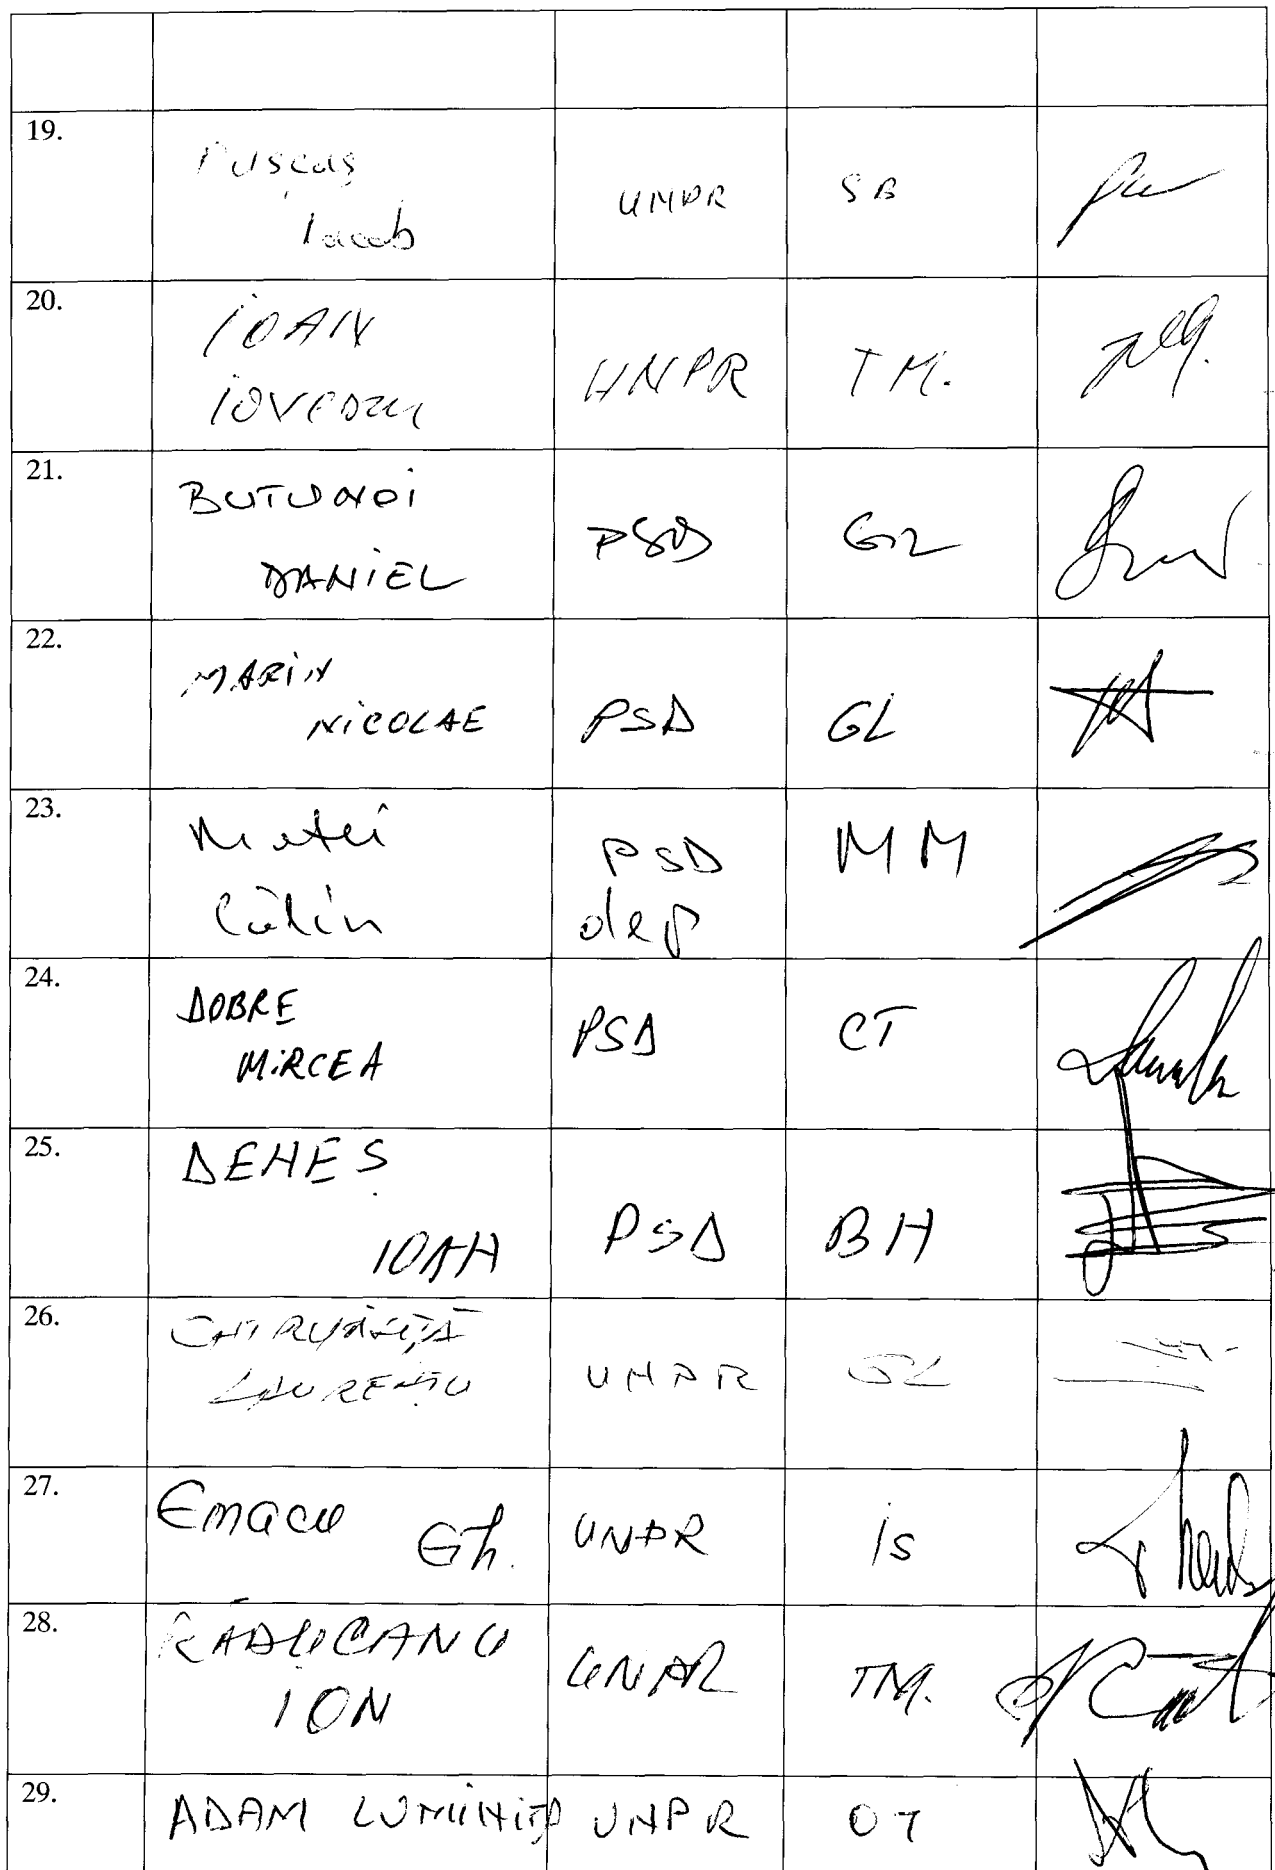 19.
Pușcaș
Iacob
UNPR
SB
20.
IOAN
UNPR
TM.
21.
BUTUNOI
DANIEL
PSD
22.
MARIN
NICOLAE
PSD
GL
23.
Matei
Călin
PSD
dep
MM
24.
DOBRE
MIRCEA
PSD
CT
25.
DEHES
IOAN
PSD
BH
26.
CHIRVĂSUȚĂ
LAURENȚIU
UNPR
GL
27.
Emacu
Gh.
UNPR
IS
28.
RĂDUCANU
ION
UNPR
TM.
29.
ADAM LUMINIȚA
UNPR
OT